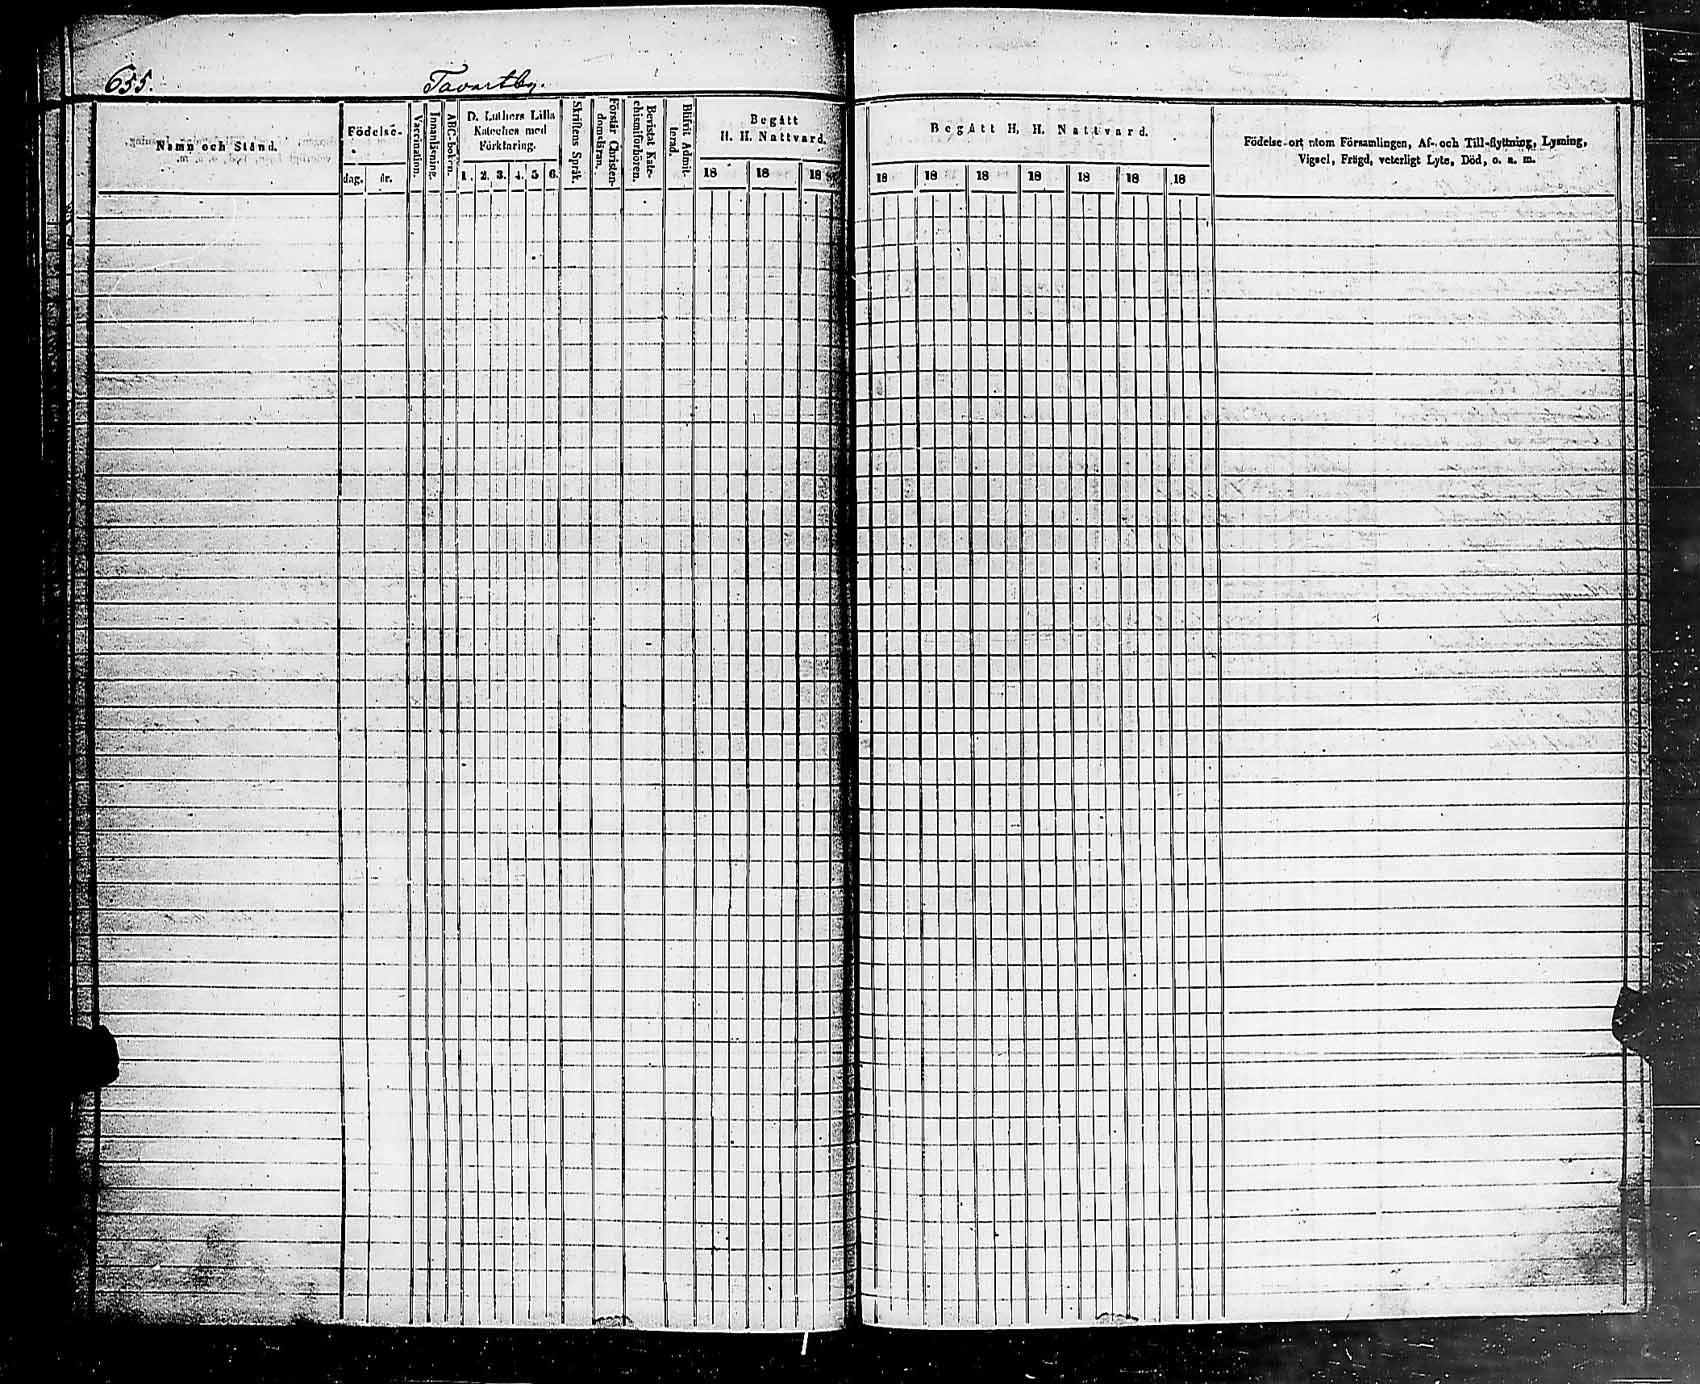 655. Tavastby.
Namn och Stånd.
Födelse-
dag. år.
Vaccination.
Innanläsning.
ABC-boken.
D. Luthers Lilla
Kateches med
Förklaring.
1. 2. 3. 4. 5 6.
Skriftens Språk.
Förstår Christen-
domsläran.
Bevistat Kate-
chismiförhören.
Blifvit Admit-
terad.
Begått
H. H. Nattvard.
18 18 18
Begått H. H. Nattvard.
18 18 18 18 18 18 18
Födelse-ort utom Församlingen, Af- och Till-flyttning, Lysning,
Vigsel, Frägd, veterligt Lyte, Död, o. s. m.